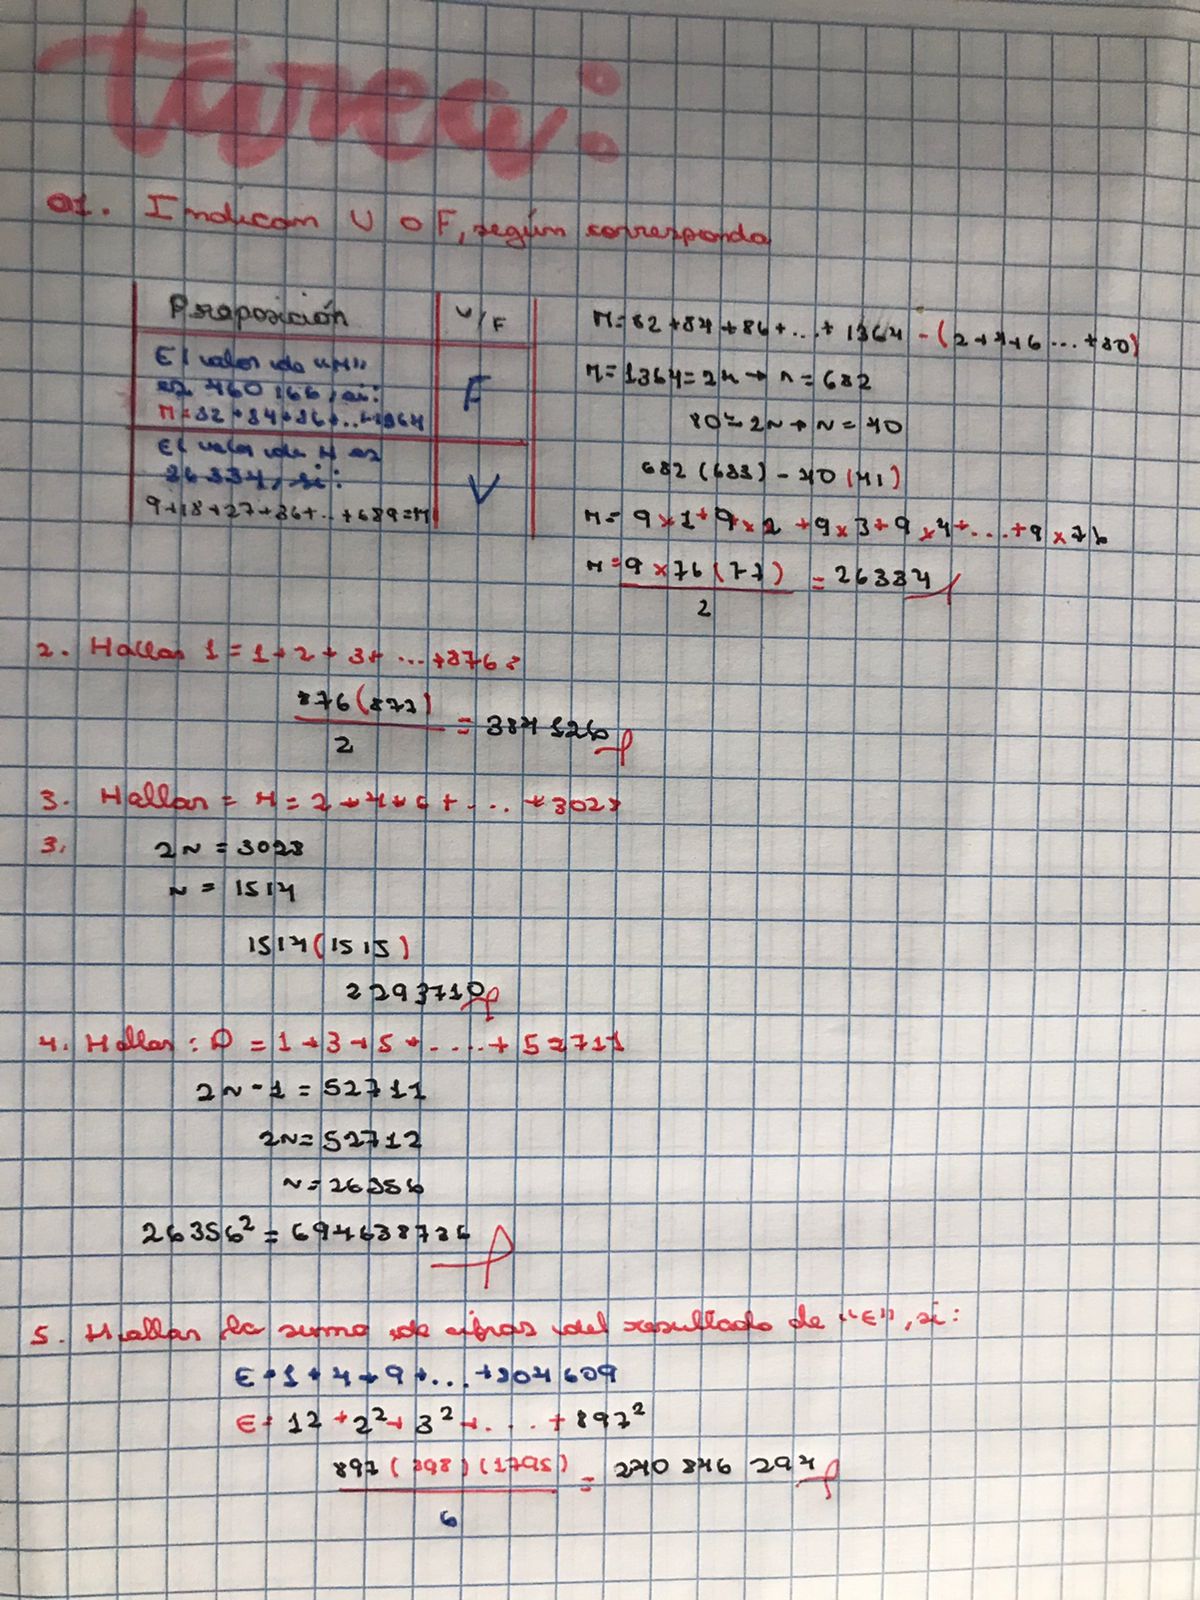 tarea:
01. Indican V o F, según corresponda
Proposición V/F
El valor de "M"
es 460 166, si:
M = 82 + 84 + 86 + ... + 1364
F
El valor de M es
26334, si:
9+18+27+36+...+689=M
V
M = 82 + 84 + 86 + ... + 1364 - (2+4+6 ... +80)
M = 1364 = 2n → n = 682
80 = 2n → n = 40
682 (683) - 40 (41)
M = 9 x 1 + 9 x 2 + 9 x 3 + 9 x 4 + ... + 9 x 76
M = 9 x 76 (77) = 26334
2
2. Hallar 1 = 1 + 2 + 3 + ... + 876:
876 (877) = 384126
2
3. Hallar = M = 2 + 4 + 6 + ... + 3028
3. 2n = 3028
n = 1514
1514 (1515)
2293710
4. Hallar: A = 1 + 3 + 5 + .... + 52711
2n - 1 = 52711
2n = 52712
n = 26356
26356² = 694638736
5. Hallar la suma de cifras del resultado de "E", si:
E = 1 + 4 + 9 + ... + 804 609
E = 12 + 2² + 3² + ... + 897²
897 (898) (1795) = 240 846 294
6